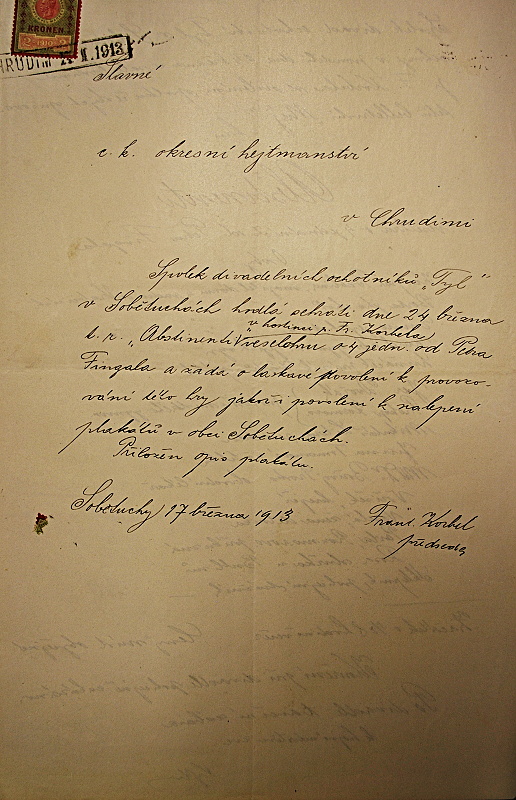 KRONEN
2 1910
CHRUDIM 1913
Slavné
c. k. okresní hejtmanství
v Chrudimi
Spolek divadelních ochotníků „Tyl“
v Sobětuchách hodlá sehráti dne 24 března
v hostinci p. Fr. Korbela
t. r. „Abstinenti“ veselohru o 4 jedn. od Petra
Fingala a žádá o laskavé povolení k provozo-
vání této hry jakož i povolení k nalepení
plakátů v obci Sobětuchách.
Přiložen opis plakátu.
Sobětuchy 17 března 1913
Frant. Korbel
předseda